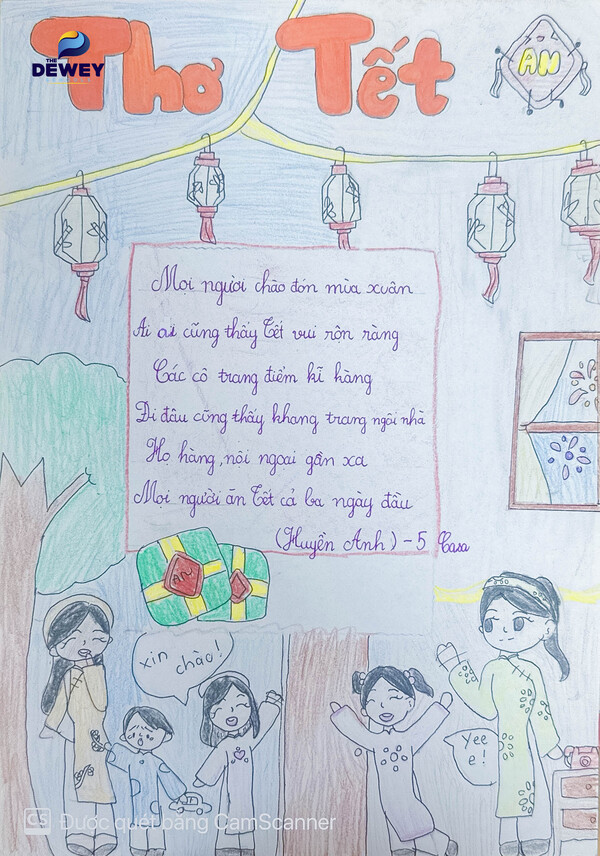 THE DEWEY
Thơ Tết
AN
Mọi người chào đón mùa xuân
Ai ai cũng thấy Tết vui rộn ràng
Các cô trang điểm kĩ hàng
Đi đâu cũng thấy khang trang ngôi nhà
Họ hàng, nội ngoại gần xa
Mọi người ăn Tết cả ba ngày đầu
(Huyền Anh) - 5 Casa
AN
xin chào!
Yee
e!
CS Được quét bằng CamScanner